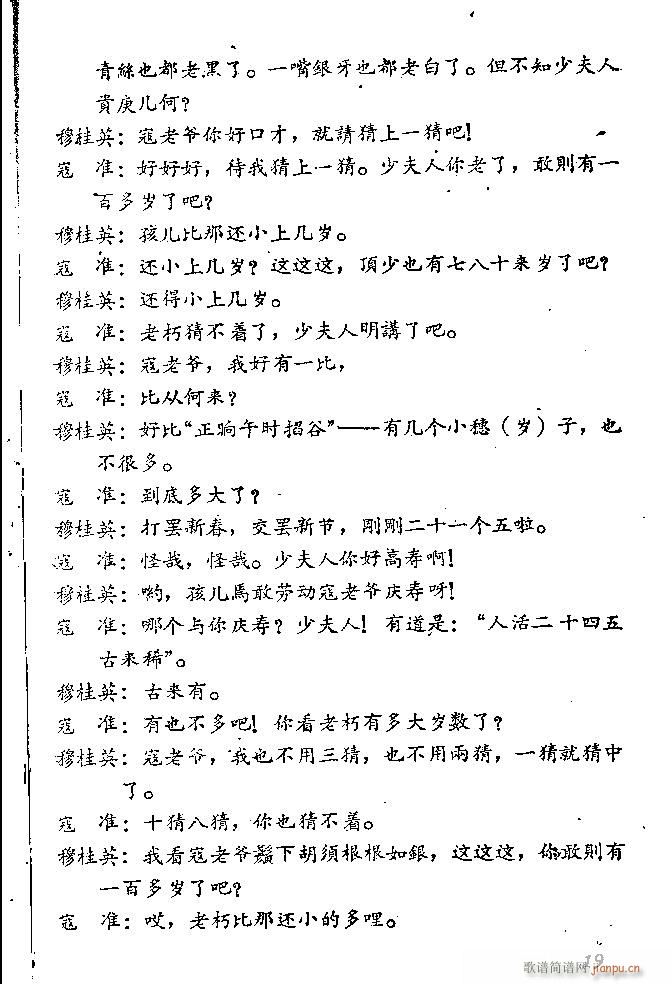 青絲也都老黑了。一嘴銀牙也都老白了。但不知少夫人
貴庚几何？
穆桂英：寇老爷你好口才，就請猜上一猜吧！
寇　准：好好好，待我猜上一猜。少夫人你老了，敢則有一
百多岁了吧？
穆桂英：孩儿比那还小上几岁。
寇　准：还小上几岁？这这这，頂少也有七八十来岁了吧？
穆桂英：还得小上几岁。
寇　准：老朽猜不着了，少夫人明講了吧。
穆桂英：寇老爷，我好有一比，
寇　准：比从何来？
穆桂英：好比“正晌午时掐谷”——有几个小穗（岁）子，也
不很多。
寇　准：到底多大了？
穆桂英：打罢新春，交罢新节，剛剛二十一个五啦。
寇　准：怪哉，怪哉。少夫人你好高寿啊！
穆桂英：喲，孩儿焉敢劳动寇老爷庆寿呀！
寇　准：哪个与你庆寿？少夫人！有道是：“人活二十四五
古来稀”。
穆桂英：古来有。
寇　准：有也不多吧！你看老朽有多大岁数了？
穆桂英：寇老爷，我也不用三猜，也不用兩猜，一猜就猜中
了。
寇　准：十猜八猜，你也猜不着。
穆桂英：我看寇老爷鬚下胡须根根如銀，这这这，你敢則有
一百多岁了吧？
寇　准：哎，老朽比那还小的多哩。
19
歌谱简谱网 jianpu.cn